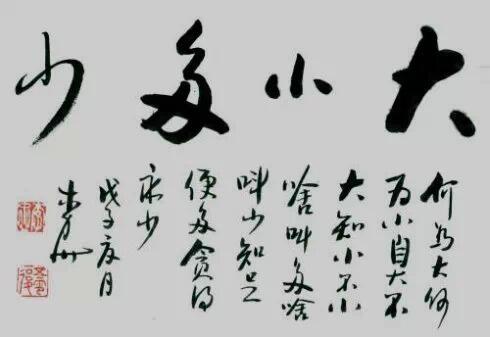 大小多少
何为大何
为小自大不
大知小不小
啥叫多啥
叫少知足
便多贪得
永少
戊子夏月